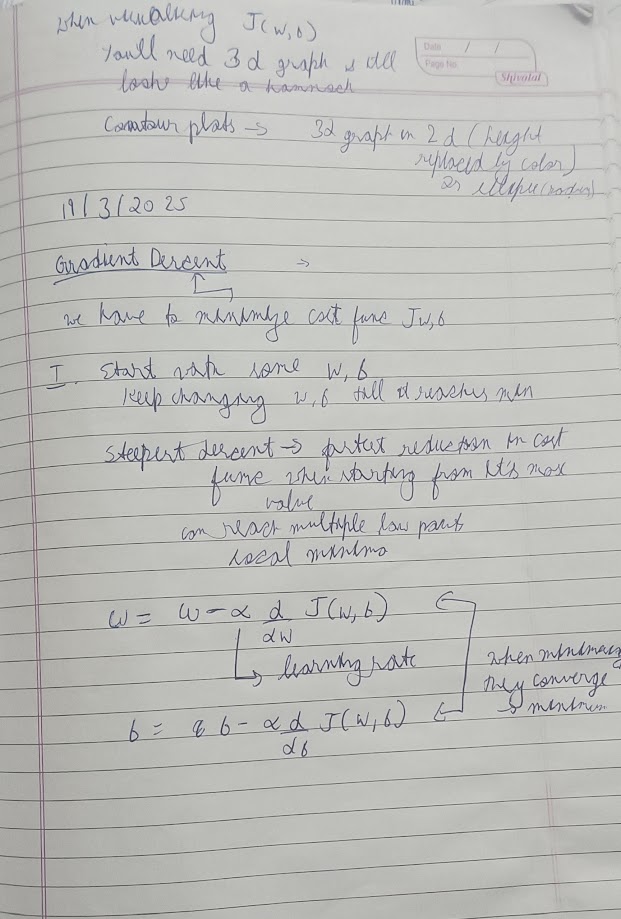 when visualising J(w,b)
You'll need 3d graph & still
looks like a hammock
Date / /
Page No.
Shivalal
Contour plots → 3d graph in 2d (height
replaced by color)
as ellipse
19/3/2025
Gradient Descent ⇒
we have to minimize cost func Jw,b
I. Start with some w,b
keep changing w,b till it reaches min
Steepest descent → fastest reduction in cost
func when starting from it's max
value
can reach multiple low parts
local minima
w = w - α d/dw J(w,b)
learning rate
when
they converge
minimum
b = b - α d/db J(w,b)